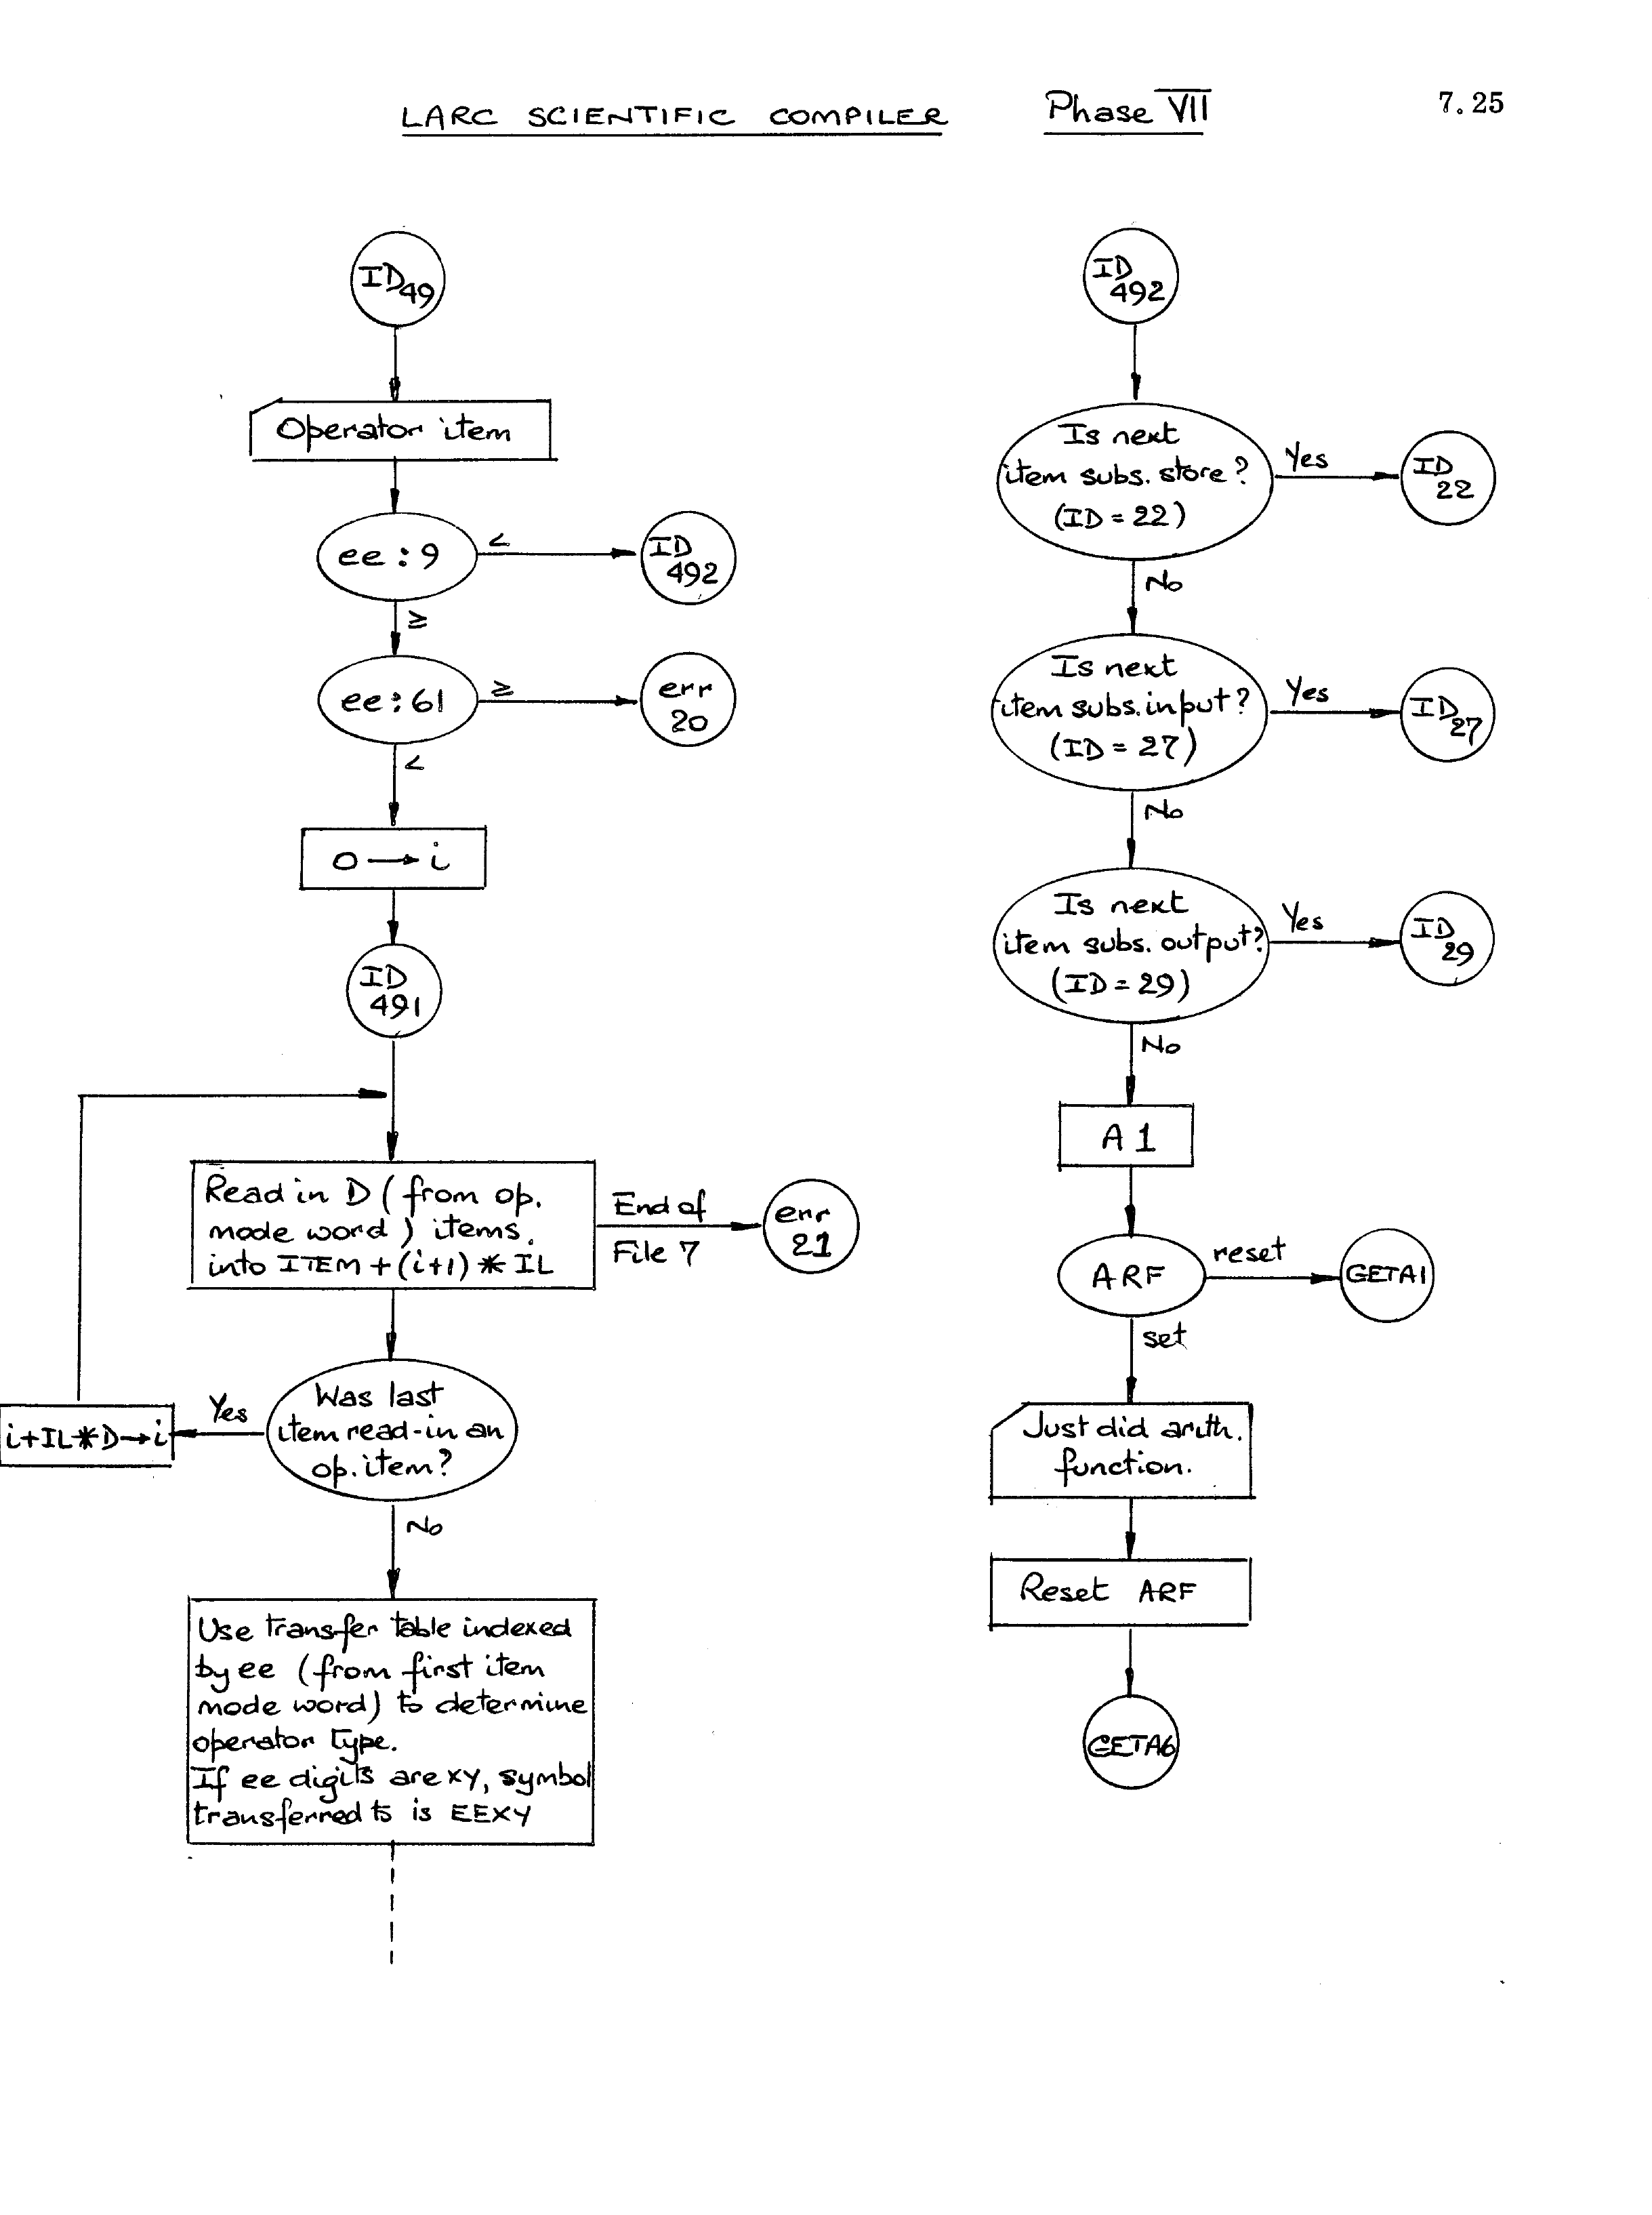 LARC SCIENTIFIC COMPILER Phase VII 7.25
ID49
Operator item
ee : 9
<
ID
492
≥
ee : 61
≥
err
20
<
0 → i
ID
491
Read in D (from op.
mode word) items.
into ITEM + (i+1) * IL
End of
File 7
err
21
Was last
item read-in an
op. item?
Yes
i+IL*D→i
No
Use transfer table indexed
by ee (from first item
mode word) to determine
operator type.
If ee digits are xy, symbol
transferred to is EEXY
ID
492
Is next
item subs. store?
(ID = 22)
Yes
ID
22
No
Is next
item subs. input?
(ID = 27)
Yes
ID27
No
Is next
item subs. output?
(ID = 29)
Yes
ID
29
No
A 1
ARF
reset
GETA1
set
Just did arith.
function.
Reset ARF
GETA6